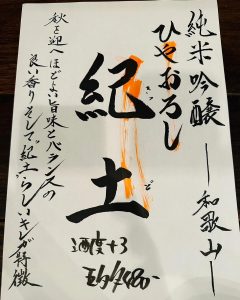 純米吟醸 ―和歌山―
ひやおろし
紀土
きっど
酒度+3
秋を迎へほどよい旨味とバランスの
良い香りそして"紀土"らしいキレが特徴